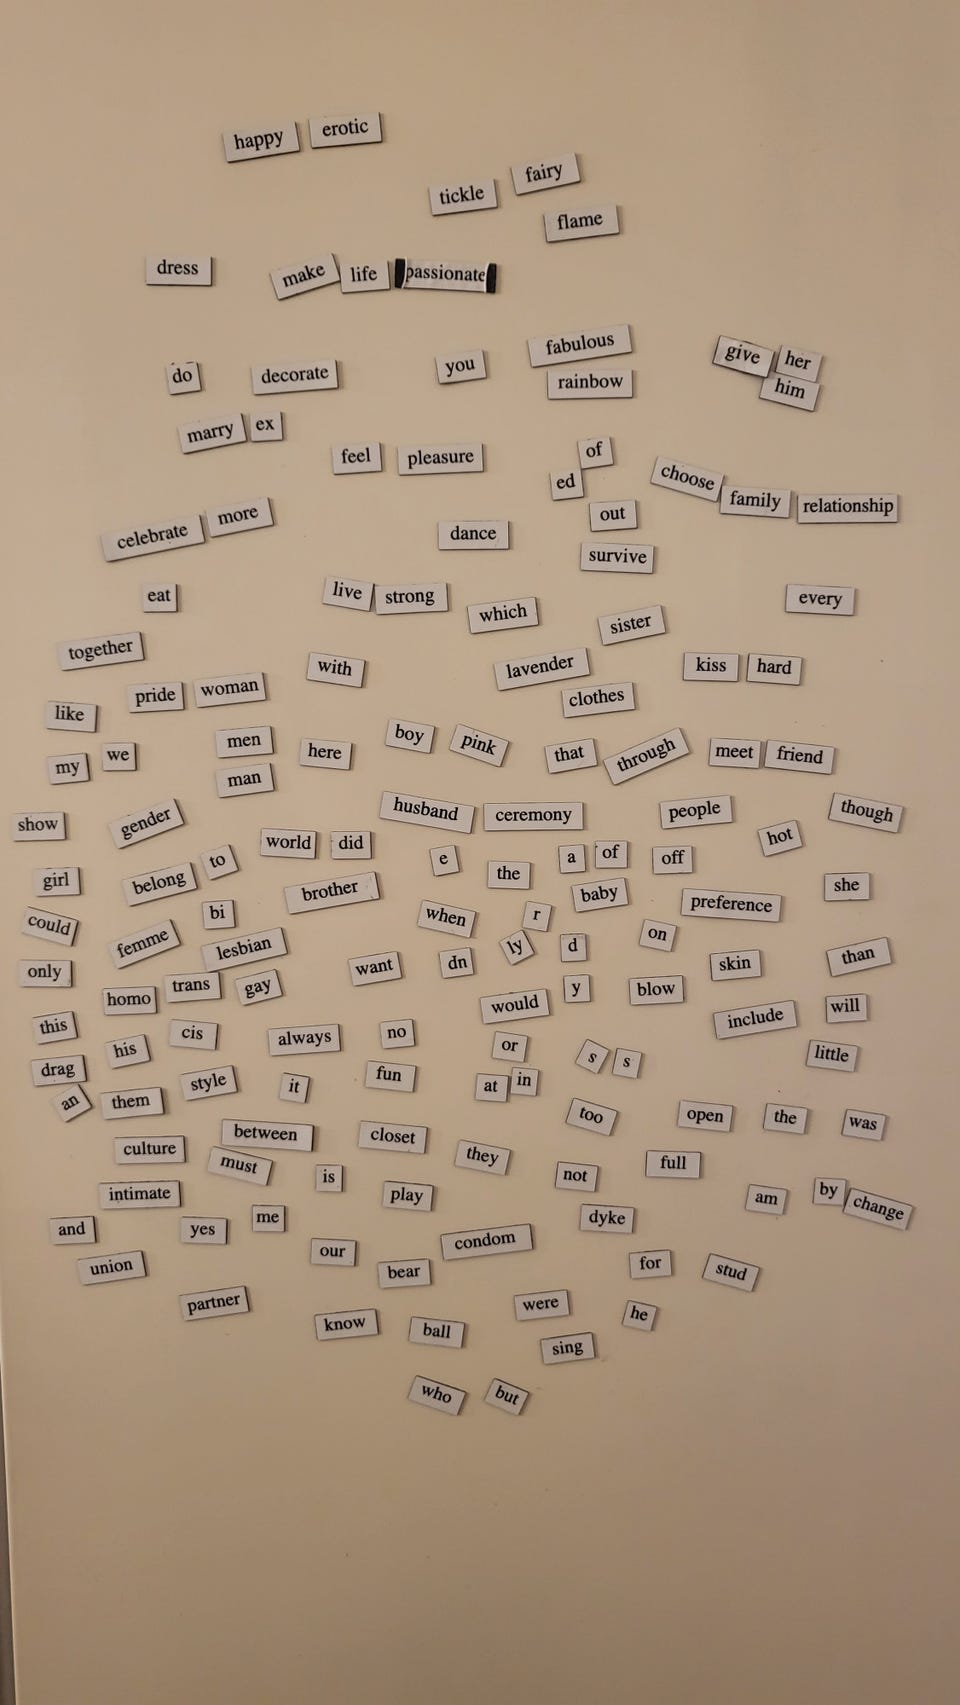 happy erotic
tickle fairy
flame
dress make life passionate
do decorate you fabulous give her
rainbow him
marry ex
feel pleasure of
ed choose family relationship
celebrate more dance out
survive
eat live strong which every
together with lavender sister kiss hard
like pride woman clothes
my we men here boy pink that through meet friend
man
show gender husband ceremony people though
world did e the a of off hot
girl belong to brother baby preference she
could bi when r on
femme lesbian want dn ly d skin than
only homo trans gay would y blow include will
this his cis always no or s s little
drag style it fun at in
an them too open the was
culture between closet they full
must is not
intimate play am by change
and yes me dyke
union our bear condom for stud
partner know ball were he
sing
who but